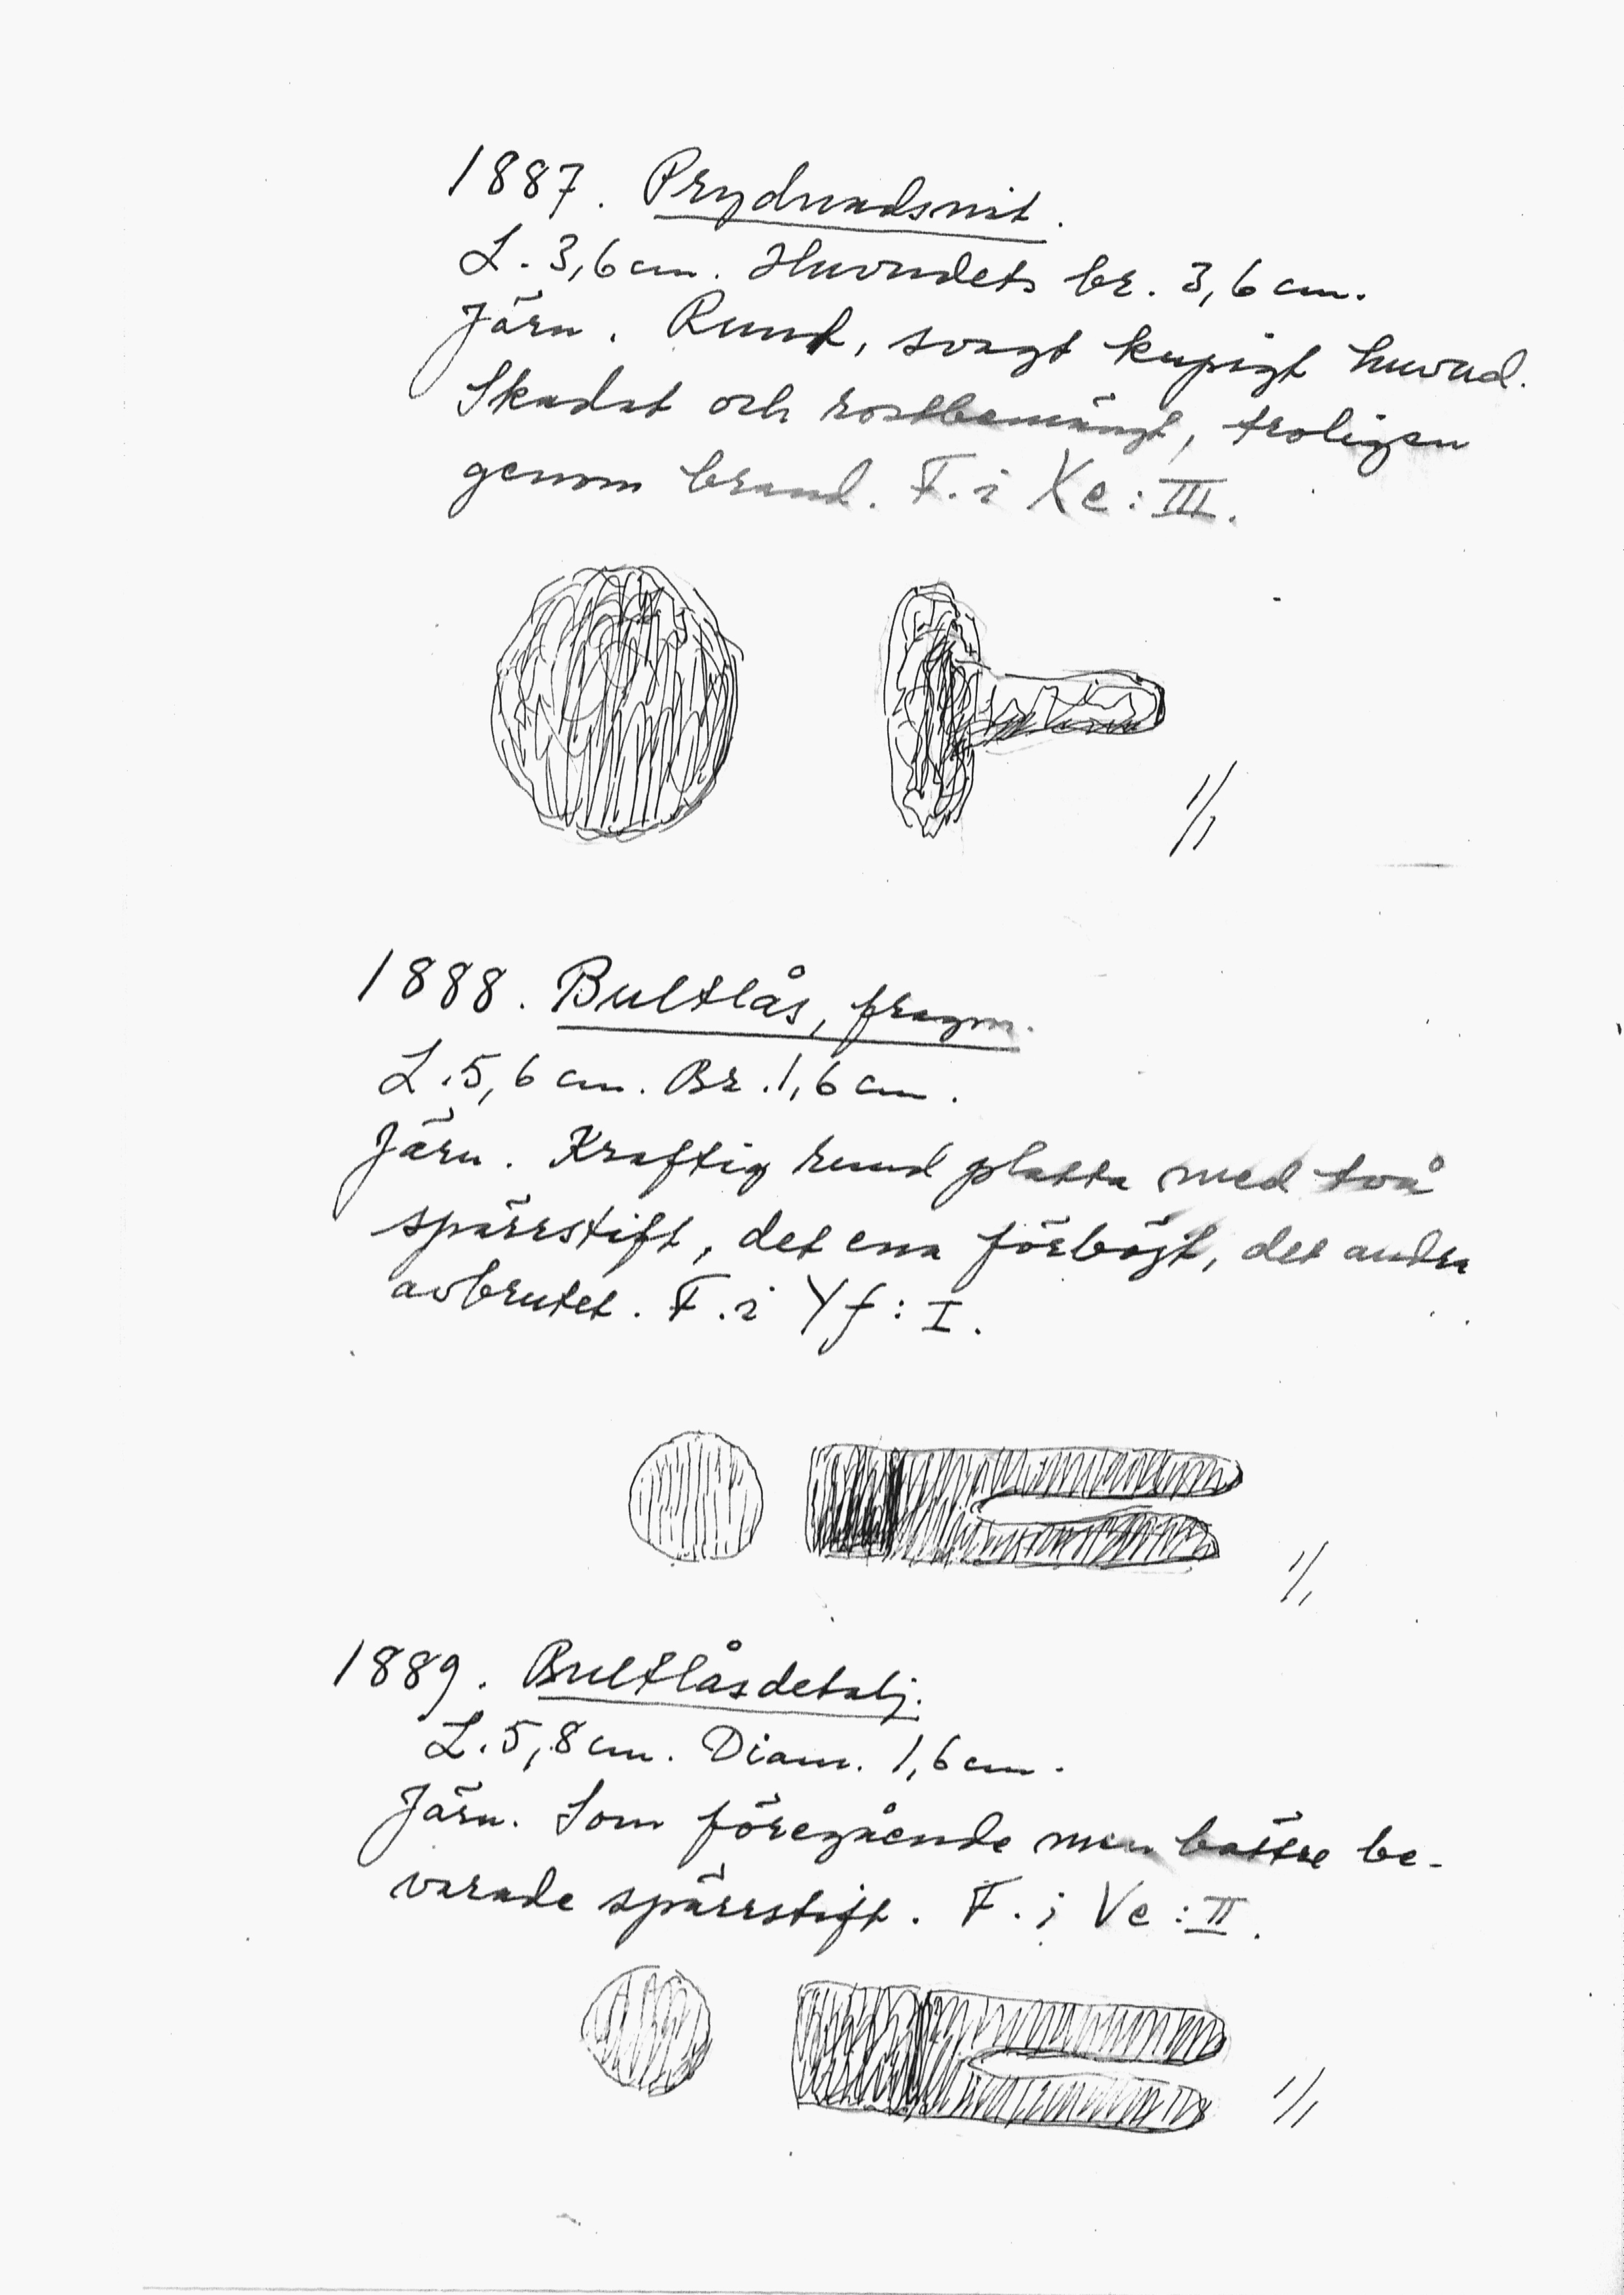 1887. Prydnadsnit.
L. 3,6 cm. Huvudets br. 3,6 cm.
Järn. Runt, svagt kupigt huvud.
Skadat och rostbemängt, troligen
genom brand. F. i Xe:III.
1/1
1888. Bultlås, fragm.
L. 5,6 cm. Br. 1,6 cm.
Järn. Kraftig rund platta med två
spärrstift, det ena förböjt, det andra
avbrutet. F. i Yf: I.
1/1
1889. Bultlåsdetalj.
L. 5,8 cm. Diam. 1,6 cm.
Järn. Som föregående men bättre be-
varade spärrstift. F. i Ve:II.
1/1